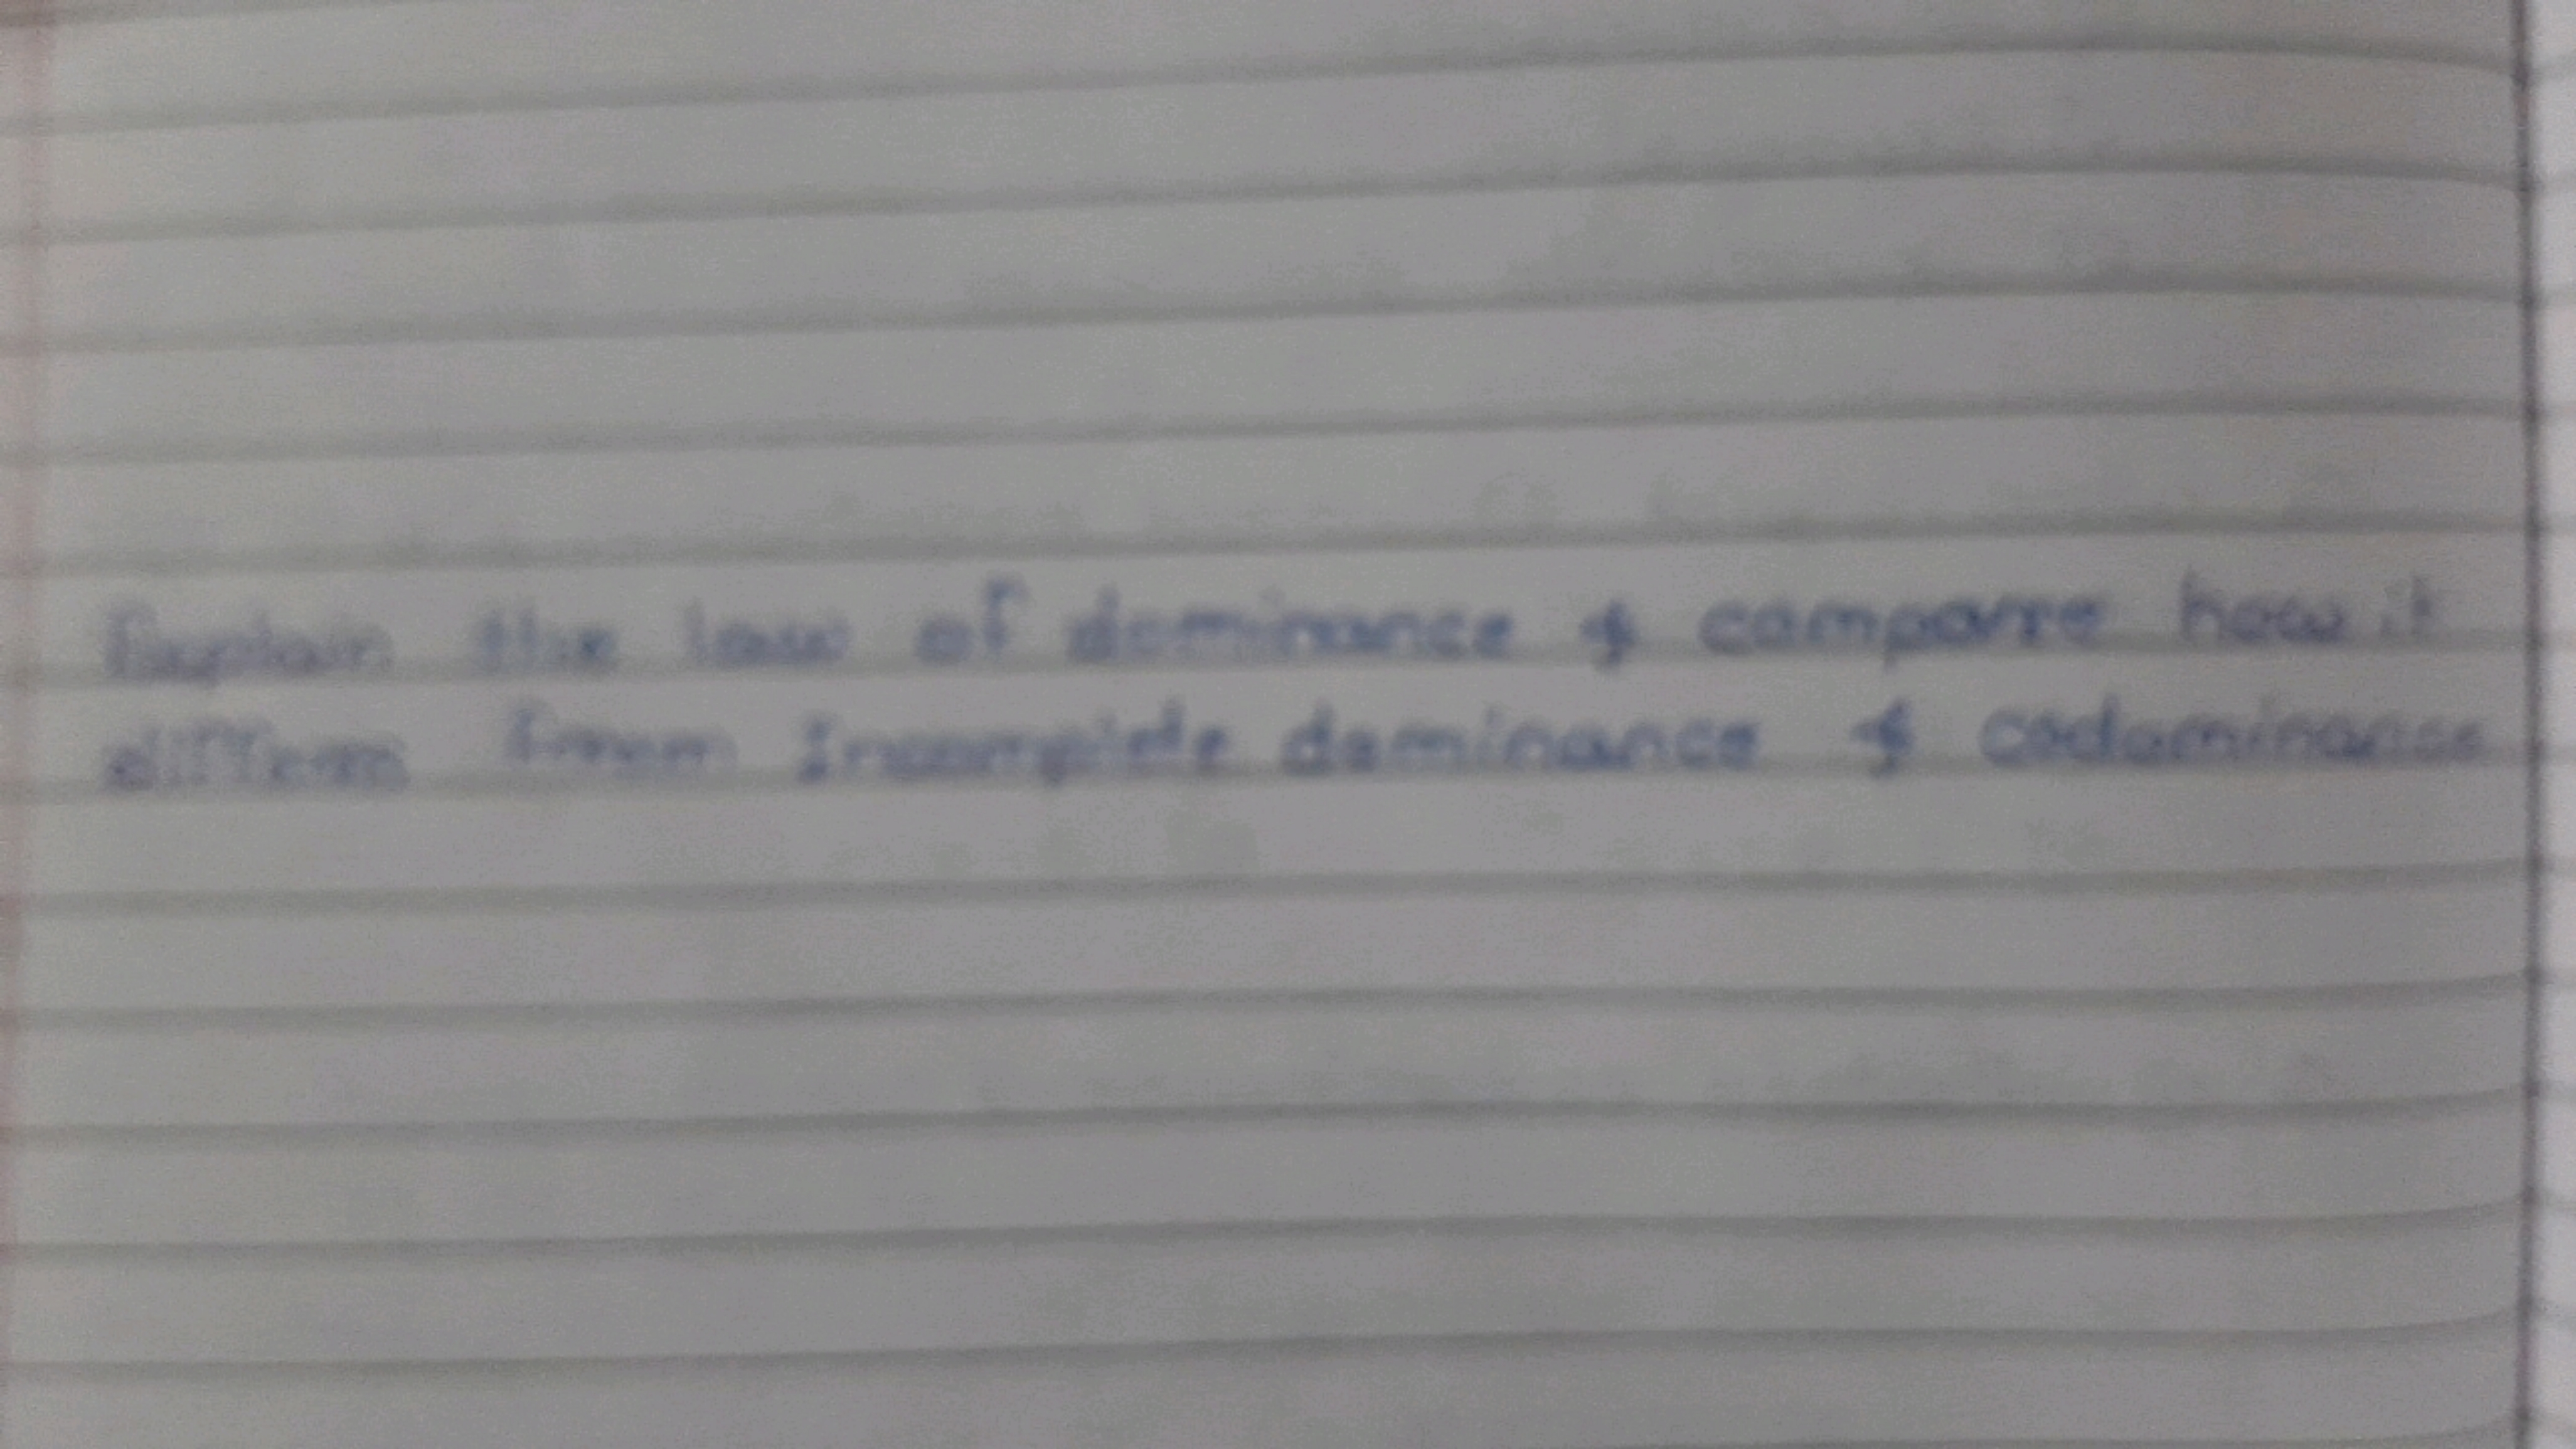 Explain the law of dominance & compare how it
differs from Incomplete dominance & codominance